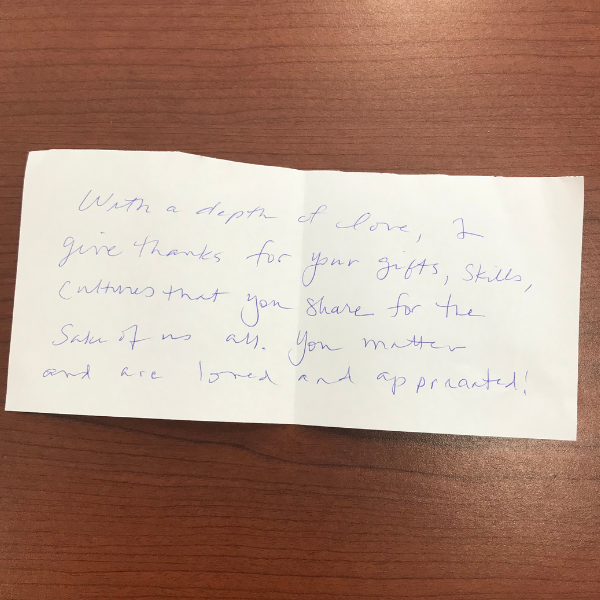 With a depth of love, I
give thanks for your gifts, skills,
cultures that you share for the
sake of us all. You matter
and are loved and appreciated!